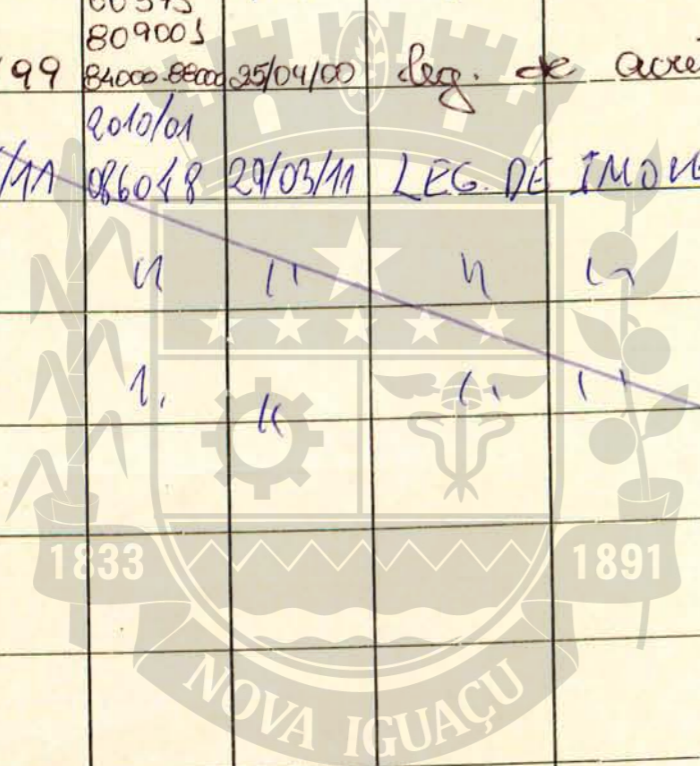 809001
/99 84000.88000 25/04/00 Leg. de acré
2010/01
/11 086048 29/03/11 LEG. DE IMOVE
" " " "
" " " "
1833 1891
NOVA IGUAÇU